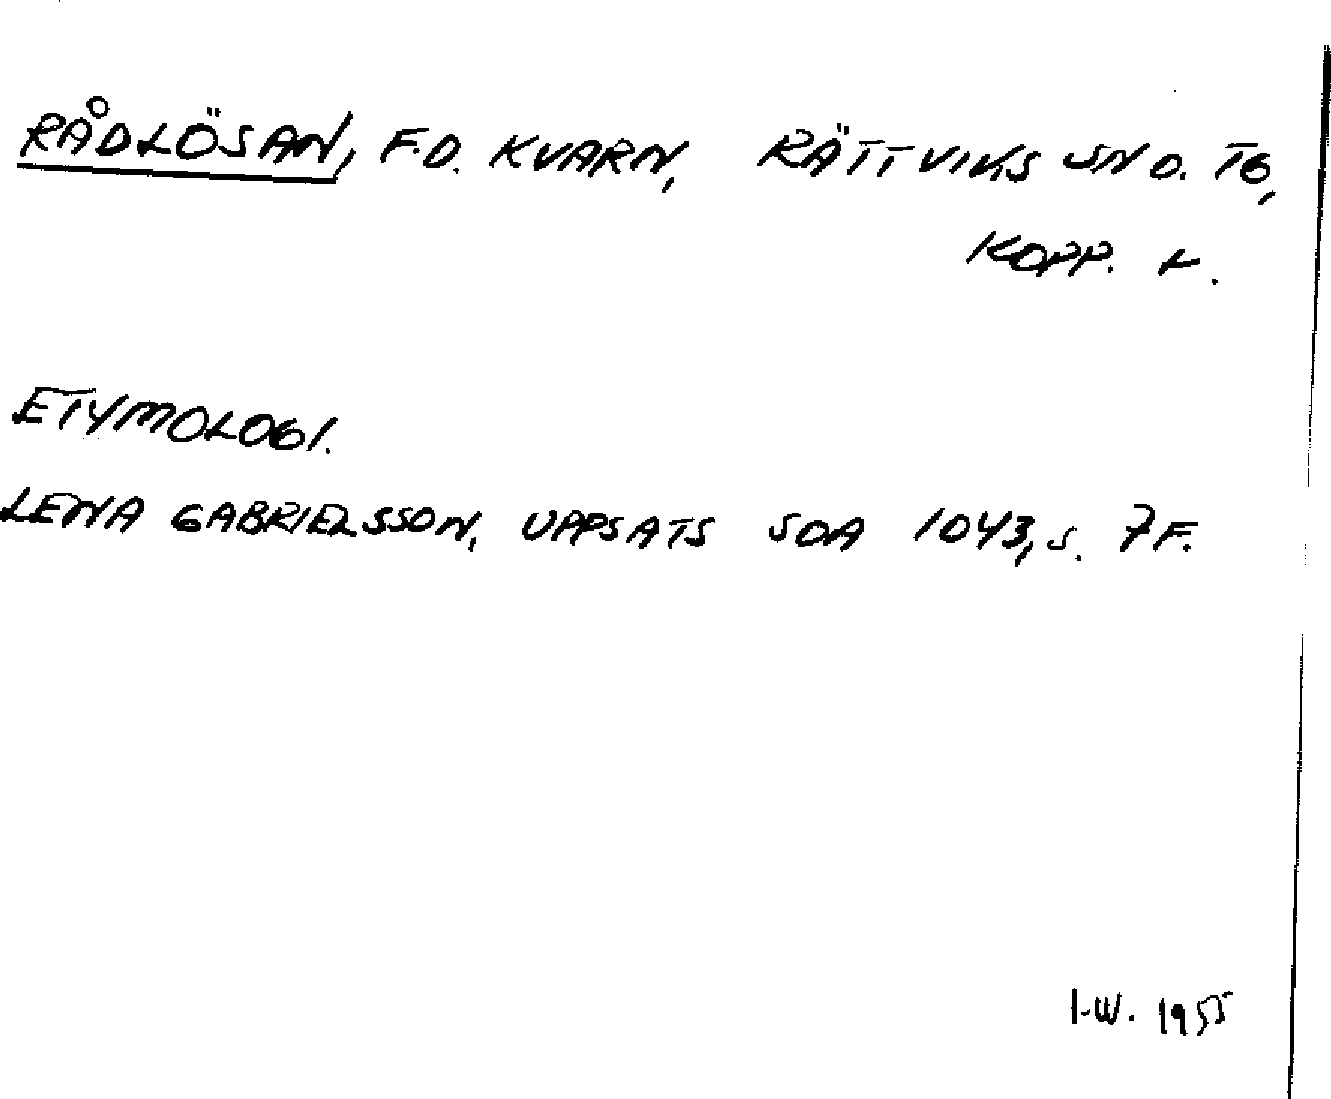 RÅDLÖSAN, F.D. KVARN, RÄTTVIKS SN O. TG,
KOPP. L.
ETYMOLOGI.
LENA GABRIELSSON, UPPSATS SOA 1043, S. 7F.
I.W. 1955